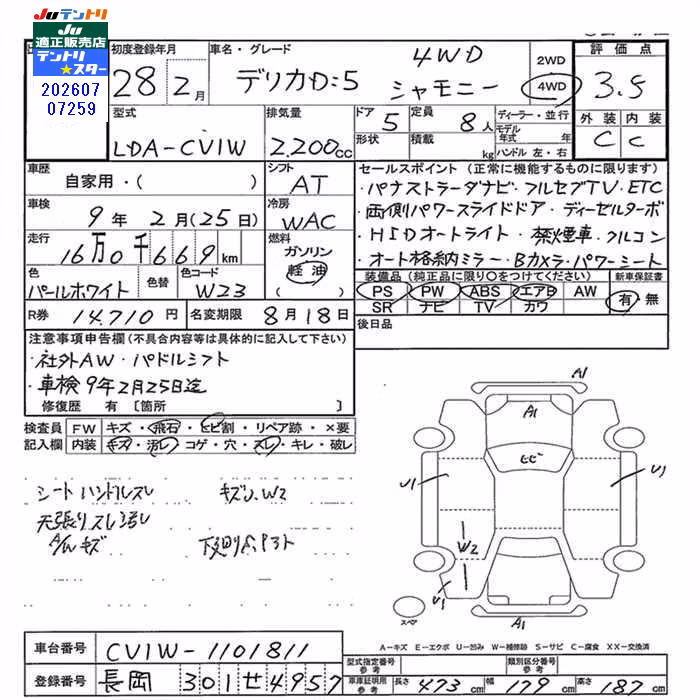 Juテントリ
Ju
適正販売店
テントリ
スター
202607
07259
初度登録年月
28 2月
車名・グレード
4WD
デリカD:5 シャモニー
2WD
4WD
評価点
3.5
外装 内装
C C
型式
LDA-CV1W
排気量
2.200cc
ドア 5
形状
定員 8人
積載 kg
ディーラー・並行
モデル年式 年
ハンドル 左・右
車歴
自家用・( )
シフト
AT
車検
9年 2月(25日)
冷房
WAC
走行
16万0千669km
燃料
ガソリン
軽油
色
パールホワイト
色替
色コード
W23
R券 14.710円
名変期限 8月18日
セールスポイント(正常に機能するものに限ります)
・パナストラーダナビ・フルセグTV・ETC
・両側パワースライドドア・ディーゼルターボ
・HIDオートライト・禁煙車・フルコン
・オート格納ミラー・Bカメラ・パワーシート
装備品(純正品に限り○をつけてください)
新車保証書
PS PW ABS エアB AW
SR ナビ TV カワ
有・無
後日品
注意事項申告欄(不具合内容等は具体的に記入して下さい)
・社外AW・パドルシフト
・車検9年2月25日迄
修復歴 有 〔箇所 〕
検査員
記入欄
FW キズ・飛石・ヒビ割・リペア跡・×要
内装 キズ・汚レ・コゲ・穴・スレ・キレ・破レ
シート ハンドルスレ
キズU、W2
天張りスレ汚レ
A/Wキズ
A1
A1
ヒビ
U1
U1
W2
U1
A1
スペア
A-キズ E-エクボ U-凹み W-補修跡 S-サビ C-腐食 XX-交換済
車台番号 CV1W-1101811
登録番号 長岡 301せ4957
型式指定番号
参考
類別区分番号
参考
車庫証明用
参考
長さ 473cm 幅 179cm 高さ 187cm